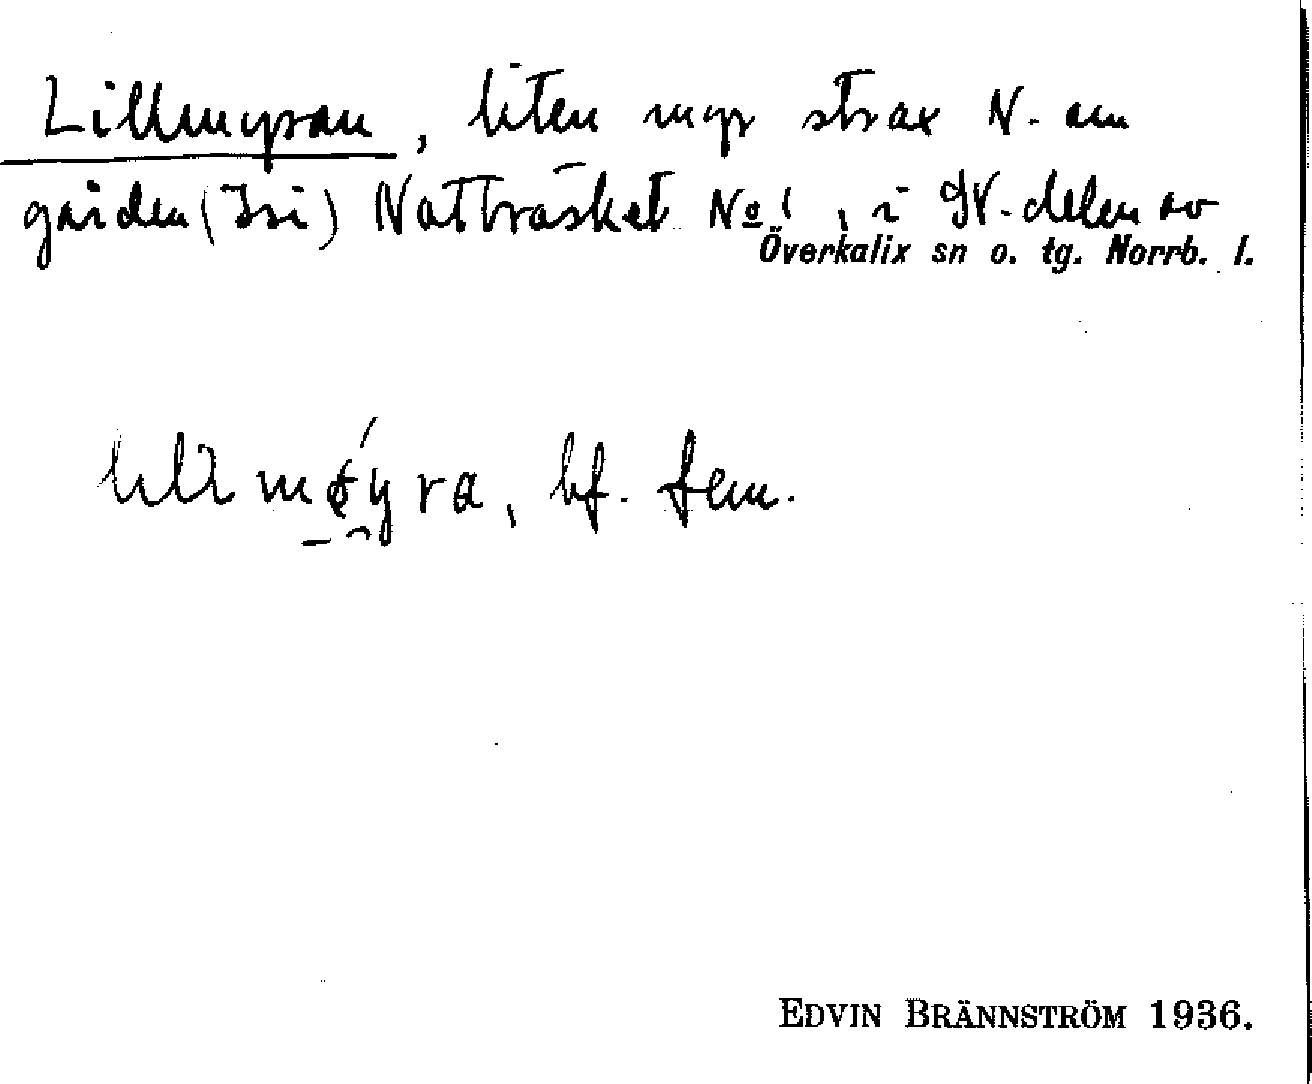 Lillmyran, liten myr strax N. om
gården (Isi) Natträsket No 1, i SV. delen av
Överkalix sn o. tg. Norrb. l.
bf. fem.
EDVIN BRÄNNSTRÖM 1936.